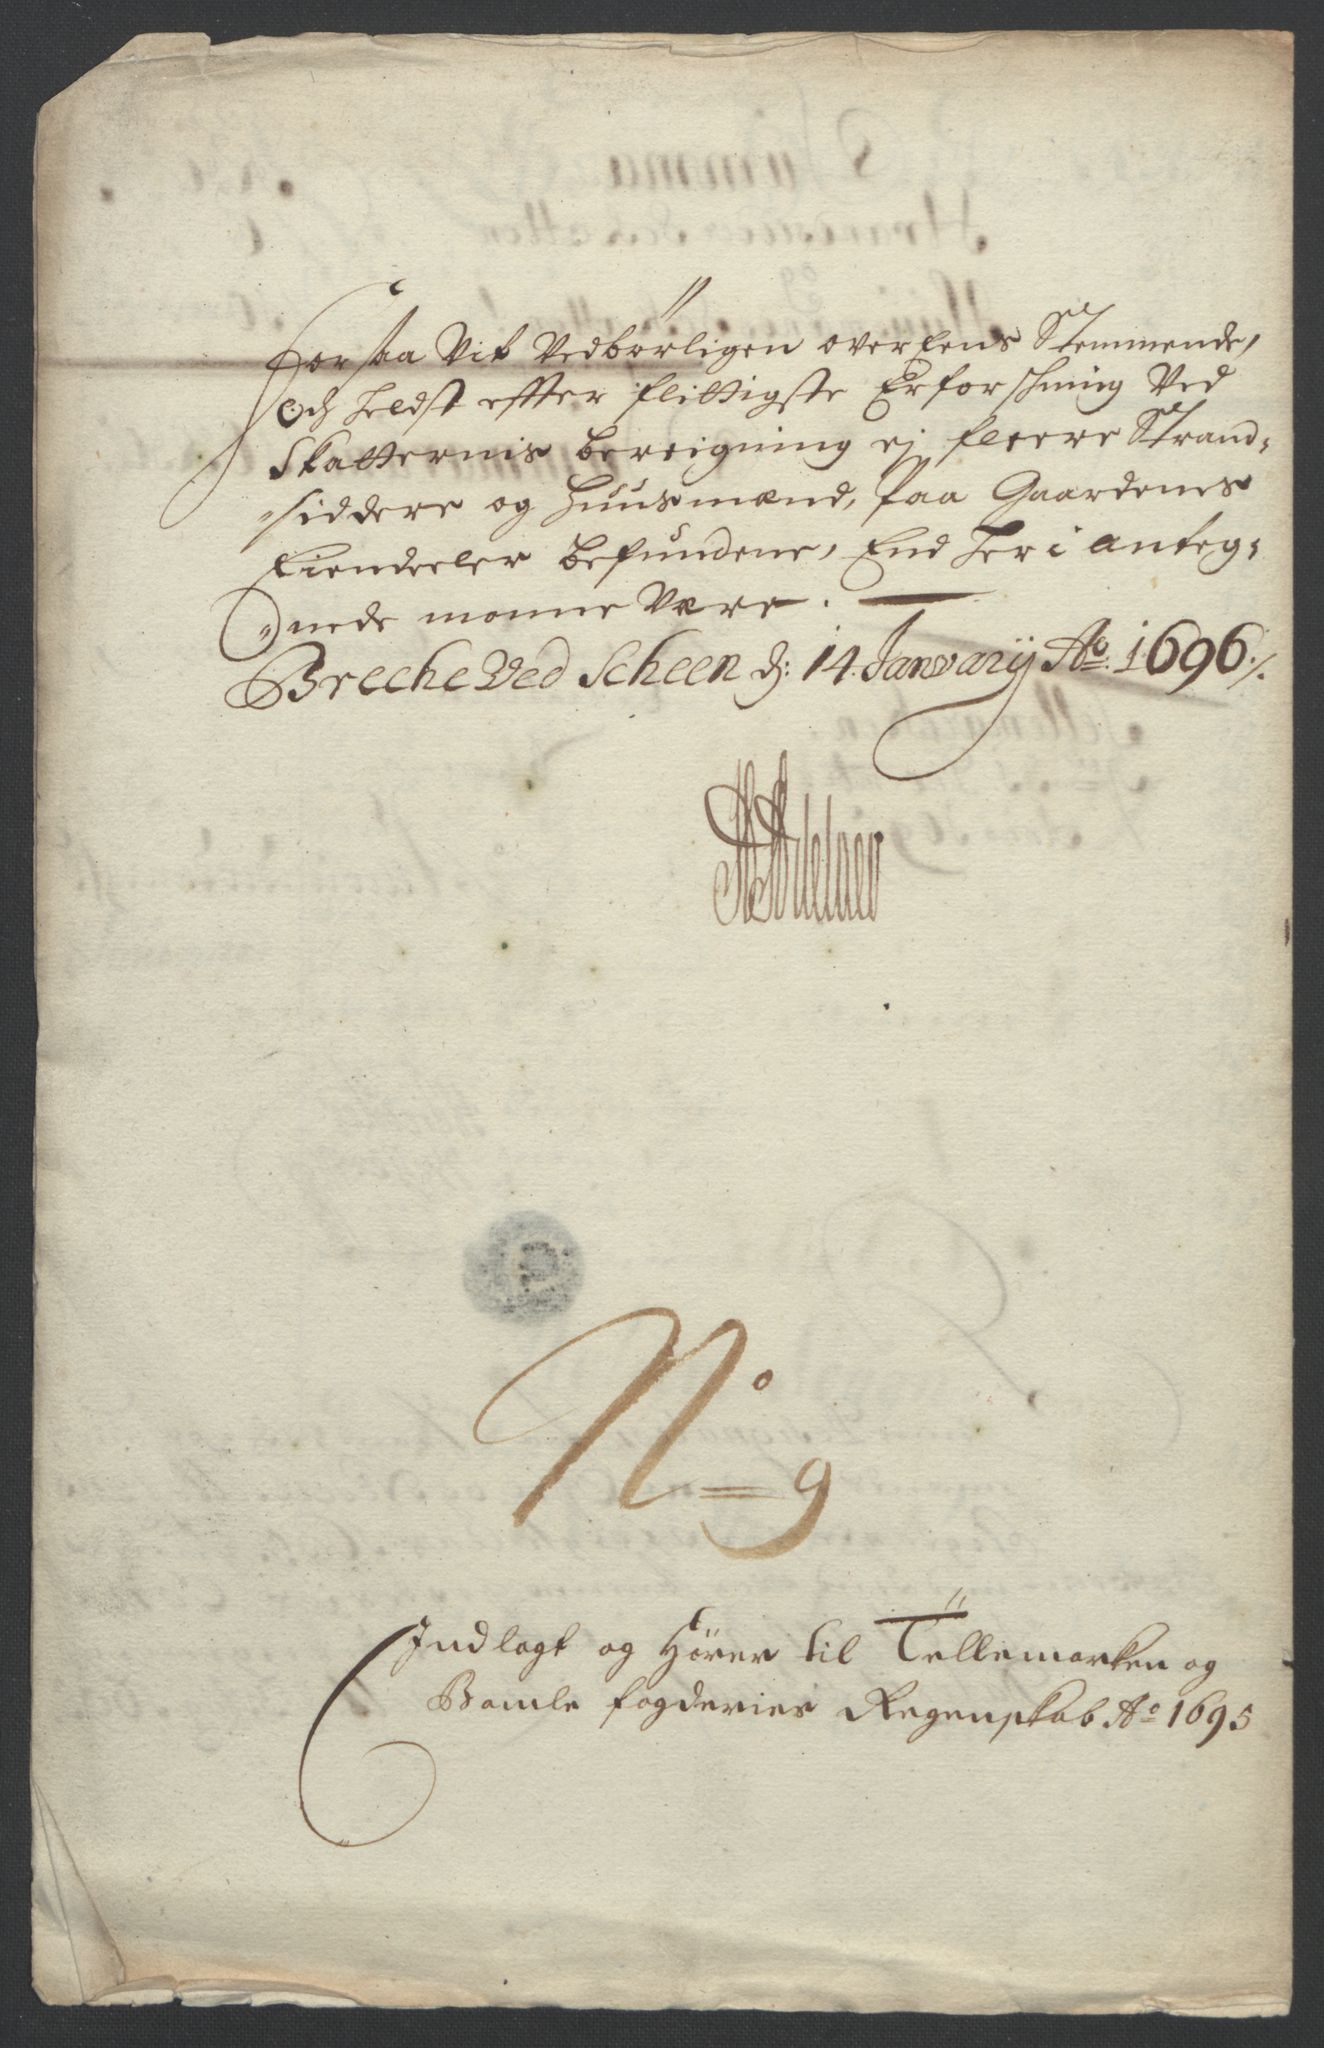 Forsaa Vit Vedbørligen overEens Stemmende,
Och heldst effter flittigste Erforschning Ved
Skatternis bereigning ej fleere Strand-
siddere og Huusmænd, paa Gaardenes
Eiendeeler befundene, End her i anteg-
nede monne Være.
Breche Ved Scheen d: 14 Janvarij Ao. 1696./.
No 9
Indlagt og Hører til Tellemarken og
Bamle fogderies Regenskab Ao 1695